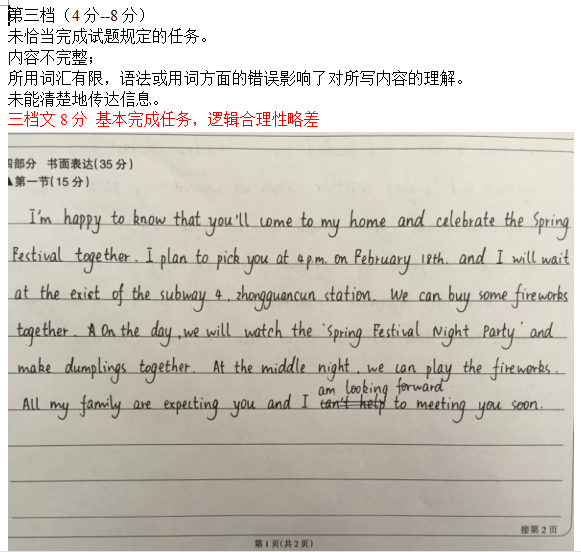 第三档（4分--8分）
未恰当完成试题规定的任务。
内容不完整；
所用词汇有限，语法或用词方面的错误影响了对所写内容的理解。
未能清楚地传达信息。
三档文8分 基本完成任务，逻辑合理性略差
四部分 书面表达(35分)
▲第一节(15分)
I'm happy to know that you'll come to my home and celebrate the Spring
Festival together. I plan to pick you at 4 p.m. on February 18th. and I will wait
at the exict of the subway 4, zhongguancun station. We can buy some fireworks
together. A On the day, we will watch the 'Spring Festival Night Party' and
make dumplings together. At the middle night, we can play the fireworks.
am looking forward
All my family are expecting you and I can't help to meeting you soon.
接第2页
第1页(共2页)